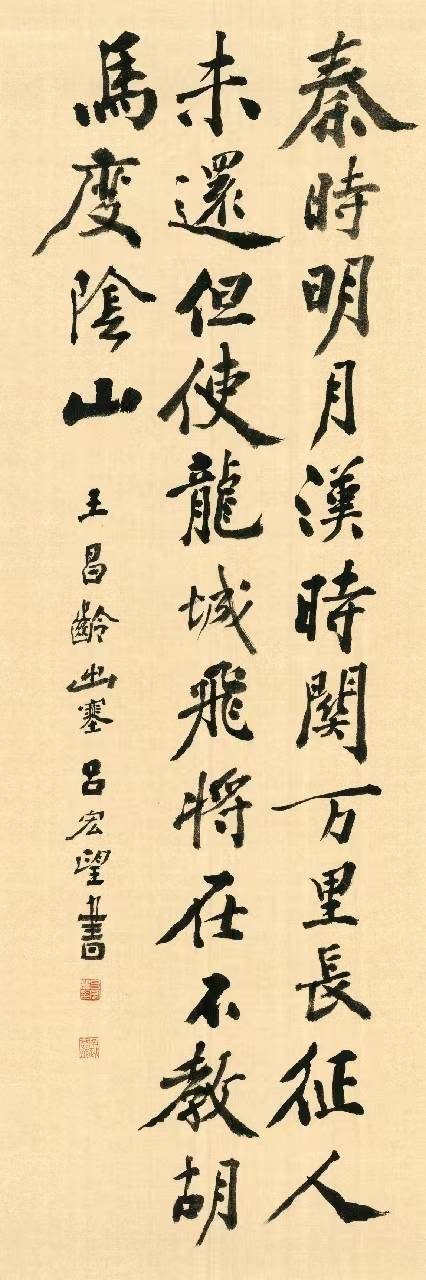 秦時明月漢時関万里長征人
未還但使龍城飛將在不教胡
馬度陰山
王昌齡出塞呂宏望書